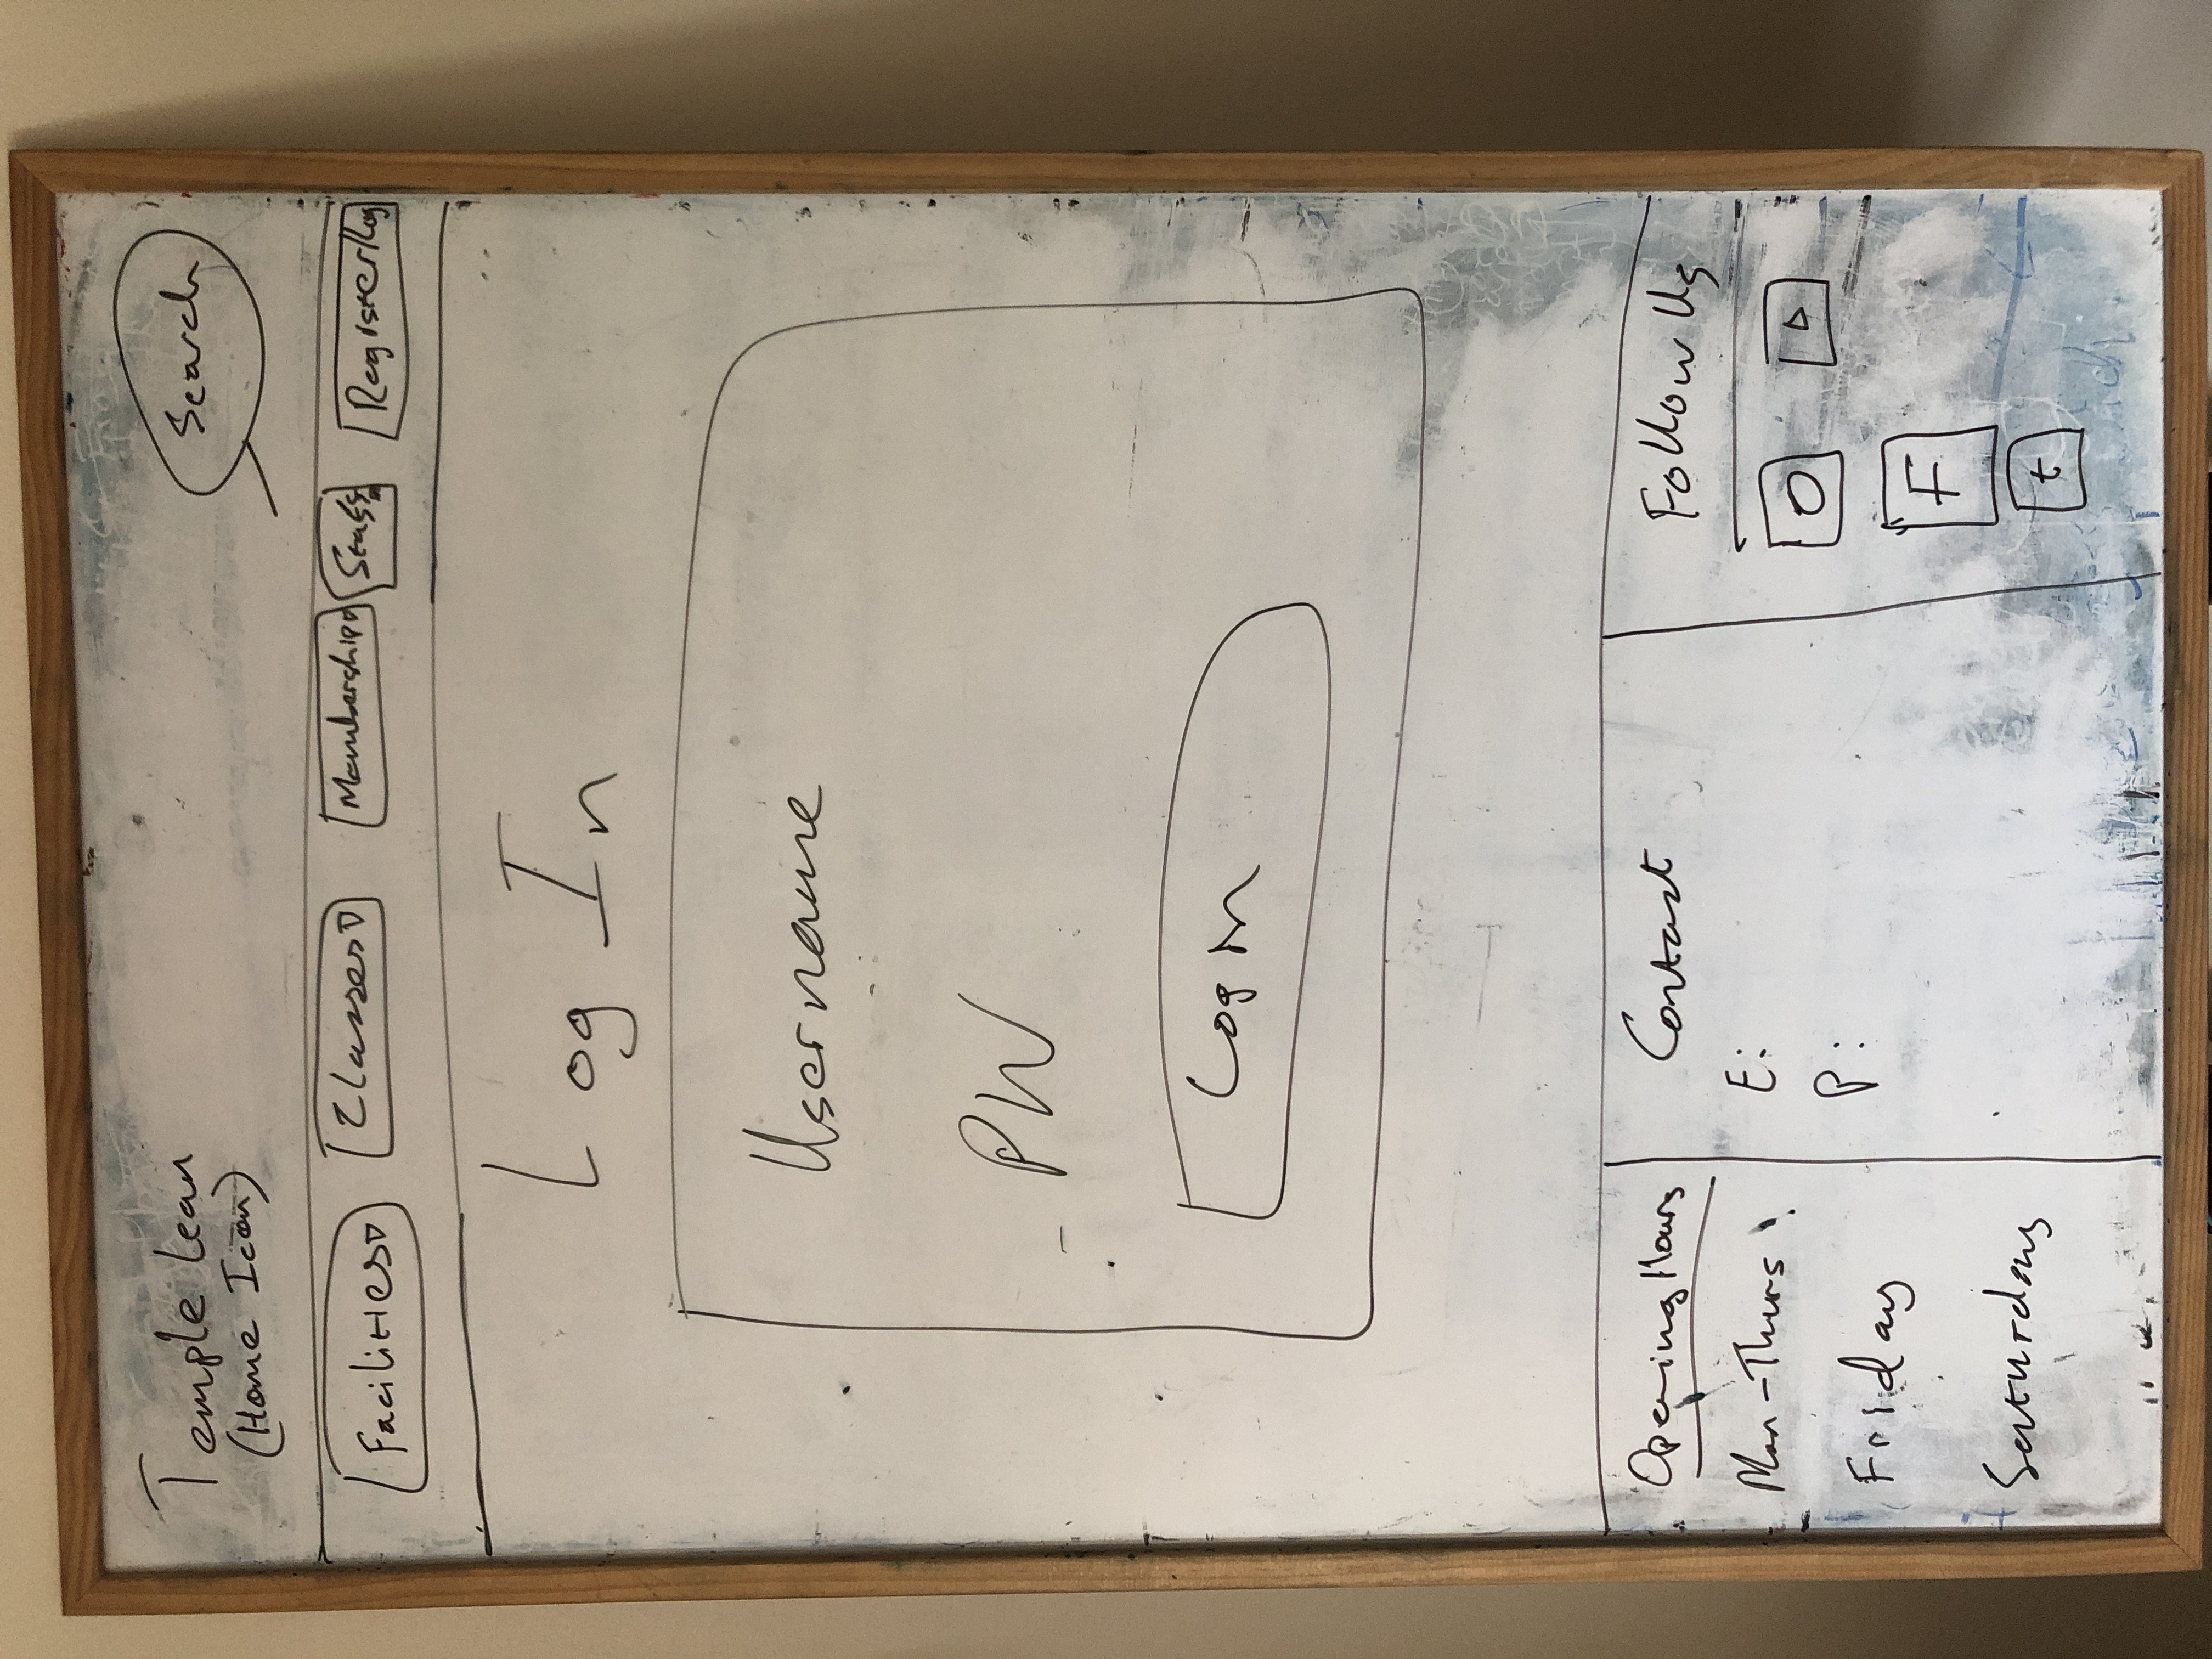 Temple Lean
(Home Icon)
Search
Facilities
Classes
Membership
Staff
Register/Log
Log In
Username
PW
Log in
Opening Hours
Mon-Thurs:
Friday
Saturday
Contact
E:
P:
Follow Us
F
t